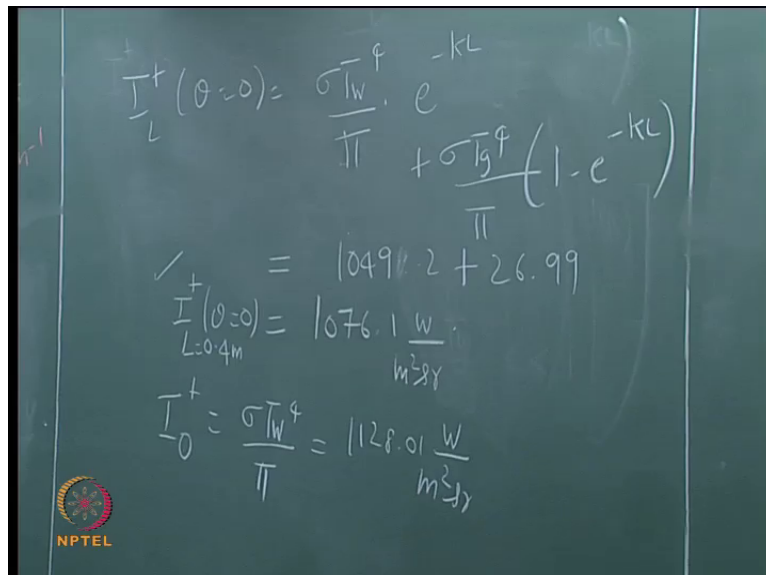 I⁺_L (θ=0) = σTw⁴/π · e^-KL
+ σTg⁴/π (1 - e^-KL)
✓ = 1049.2 + 26.99
I⁺_L=0.4m (θ=0) = 1076.1 W/m²sr
I⁺_0 = σTw⁴/π = 1128.01 W/m²sr
NPTEL